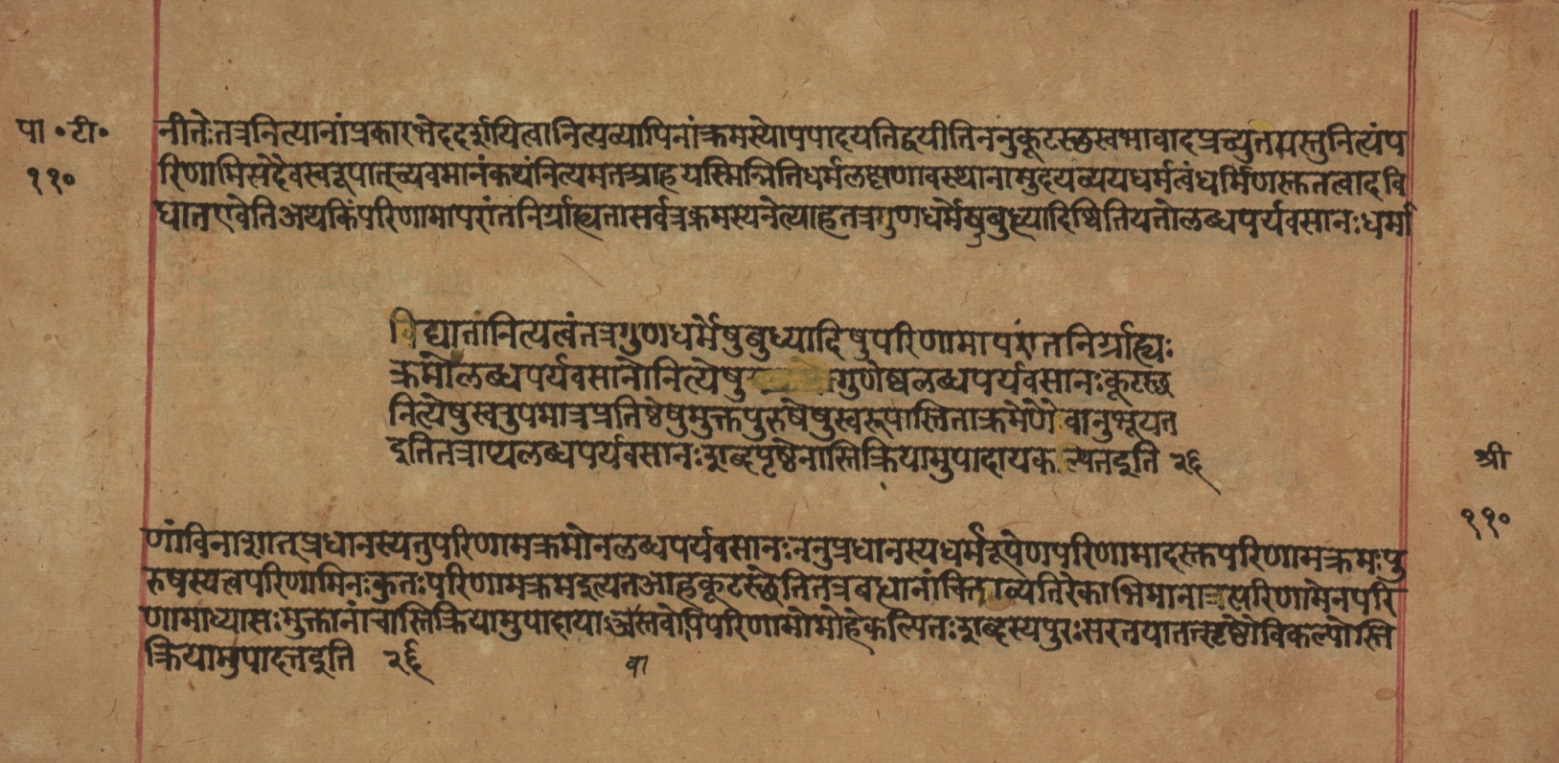 पा॰टी॰
११०
नीतेःतत्रनित्यानांप्रकारभेदंदर्शयित्वानित्यव्यापिनांक्रमस्योपपादयतिद्वयीतिननुकूटस्थस्वभावादप्रच्युतमस्तुनित्यंप
रिणामिसदैवस्वरूपात्च्यवमानंकथंनित्यमतआहयस्मिन्नितिधर्मलक्षणावस्थानामुदयव्ययधर्मत्वंधर्मिणस्ततत्वादवि
घातएवेतिअथकिंपरिणामापरांतनिर्ग्राह्यतासर्वत्रक्रमस्यनेत्याहतत्रगुणधर्मेषुबुध्यादिष्वितियतोलब्धपर्यवसानःधर्मा
विद्यातांनित्यत्वंतत्रगुणधर्मेषुबुध्यादिषुपरिणामापरांतनिर्ग्राह्यः
क्रमोलब्धपर्यवसानोनित्येषु गुणेष्वलब्धपर्यवसानःकूटस्थ
नित्येषुस्वरुपमात्रप्रतिष्ठेषुमुक्तपुरुषेषुस्वरूपास्तिताक्रमेणैवानुभूयत
इतितत्राप्यलब्धपर्यवसानःशब्दपृष्ठेनास्तिक्रियामुपादायकल्पितइति २६
श्री
११०
णांविनाशात्प्रधानस्यतुपरिणामक्रमोनलब्धपर्यवसानःननुप्रधानस्यधर्मरूपेणपरिणामादस्तपरिणामक्रमःपु
रुषस्यत्वपरिणामिनःकुतःपरिणामक्रमइत्यतआहकूटस्थेतितत्रबद्धानांचित्ताव्यतिरेकाभिमानात्तत्परिणामेनपरि
णामाध्यासःमुक्तानांचास्तिक्रियामुपादाया स्तवोपिपरिणामोमोहकल्पितःशब्दस्यपुरःसरतयातत्पृष्ठोविकल्पोस्ति
क्रियामुपादत्तइति २६
वा